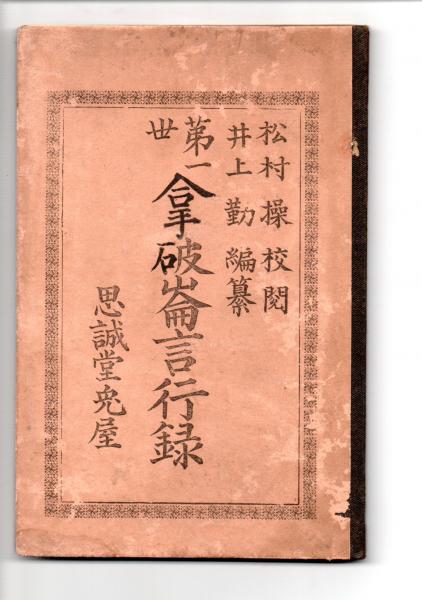 松村操校閲
井上勤編纂
第一世
拿破崙言行録
思誠堂兎屋